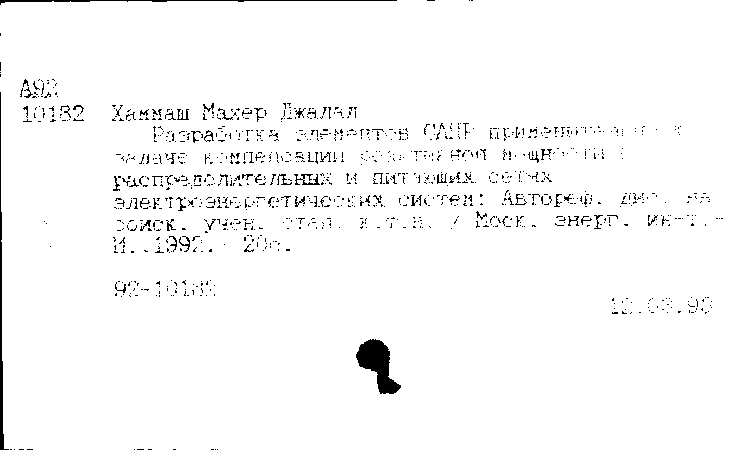 А92
10182 Хаммаш Махер Джалал
Разработка элементов САПР применительно к
задаче компенсации реактивной мощности в
распределительных и питающих сетях
электроэнергетических систем: Автореф. дис. на
соиск. учен. степ. к.т.н. / Моск. энерг. ин-т.-
М., 1992.- 20с.
92-10182
12.03.93